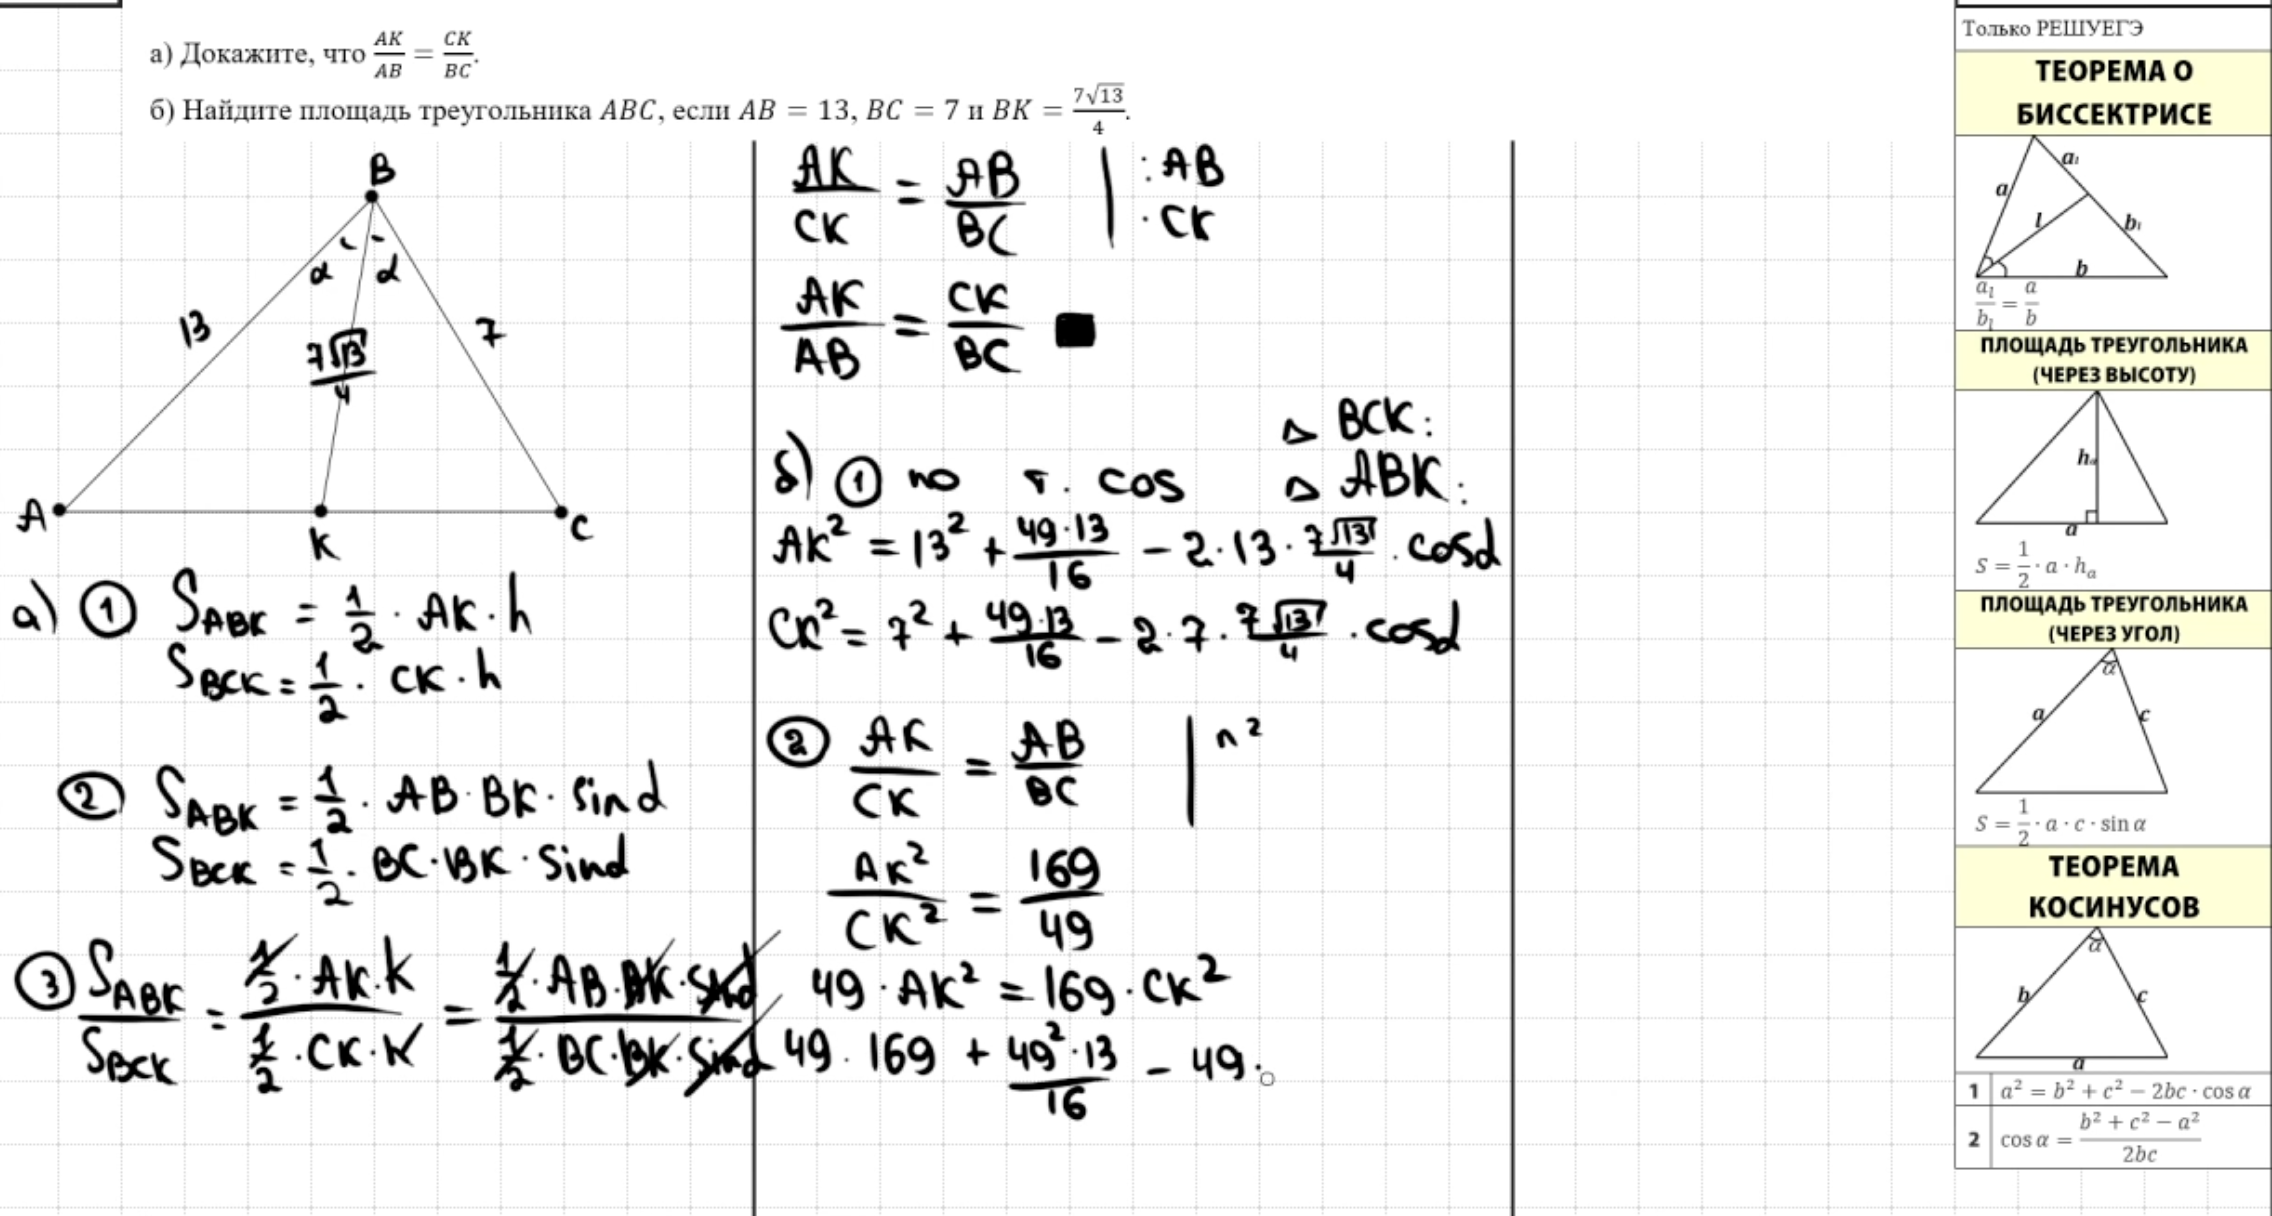 а) Докажите, что AK/AB = CK/BC.
б) Найдите площадь треугольника ABC, если AB = 13, BC = 7 и BK = 7√13/4.
B
α α
13
7√13/4
7
A
K
C
а) ① S_ABK = 1/2 · AK · h
S_BCK = 1/2 · CK · h
② S_ABK = 1/2 · AB · BK · sin α
S_BCK = 1/2 · BC · BK · sin α
③ S_ABK/S_BCK = (1/2 · AK · h)/(1/2 · CK · h) = (1/2 · AB · BK · sin α)/(1/2 · BC · BK · sin α)
AK/CK = AB/BC | : AB · CK
AK/AB = CK/BC ■
△ BCK:
б) ① по т. cos △ ABK:
AK² = 13² + 49·13/16 − 2·13· 7√13/4 · cos α
CK² = 7² + 49·13/16 − 2·7· 7√13/4 · cos α
② AK/CK = AB/BC | ^2
AK²/CK² = 169/49
49 · AK² = 169 · CK²
49 · 169 + 49²·13/16 − 49 ·
Только РЕШУЕГЭ
ТЕОРЕМА О
БИССЕКТРИСЕ
a
a₁
l
b₁
b
a_l/b_l = a/b
ПЛОЩАДЬ ТРЕУГОЛЬНИКА
(ЧЕРЕЗ ВЫСОТУ)
hₐ
a
S = 1/2 · a · hₐ
ПЛОЩАДЬ ТРЕУГОЛЬНИКА
(ЧЕРЕЗ УГОЛ)
α
a
c
S = 1/2 · a · c · sin α
ТЕОРЕМА
КОСИНУСОВ
α
b
c
a
1 a² = b² + c² − 2bc · cos α
2 cos α = (b² + c² − a²)/2bc